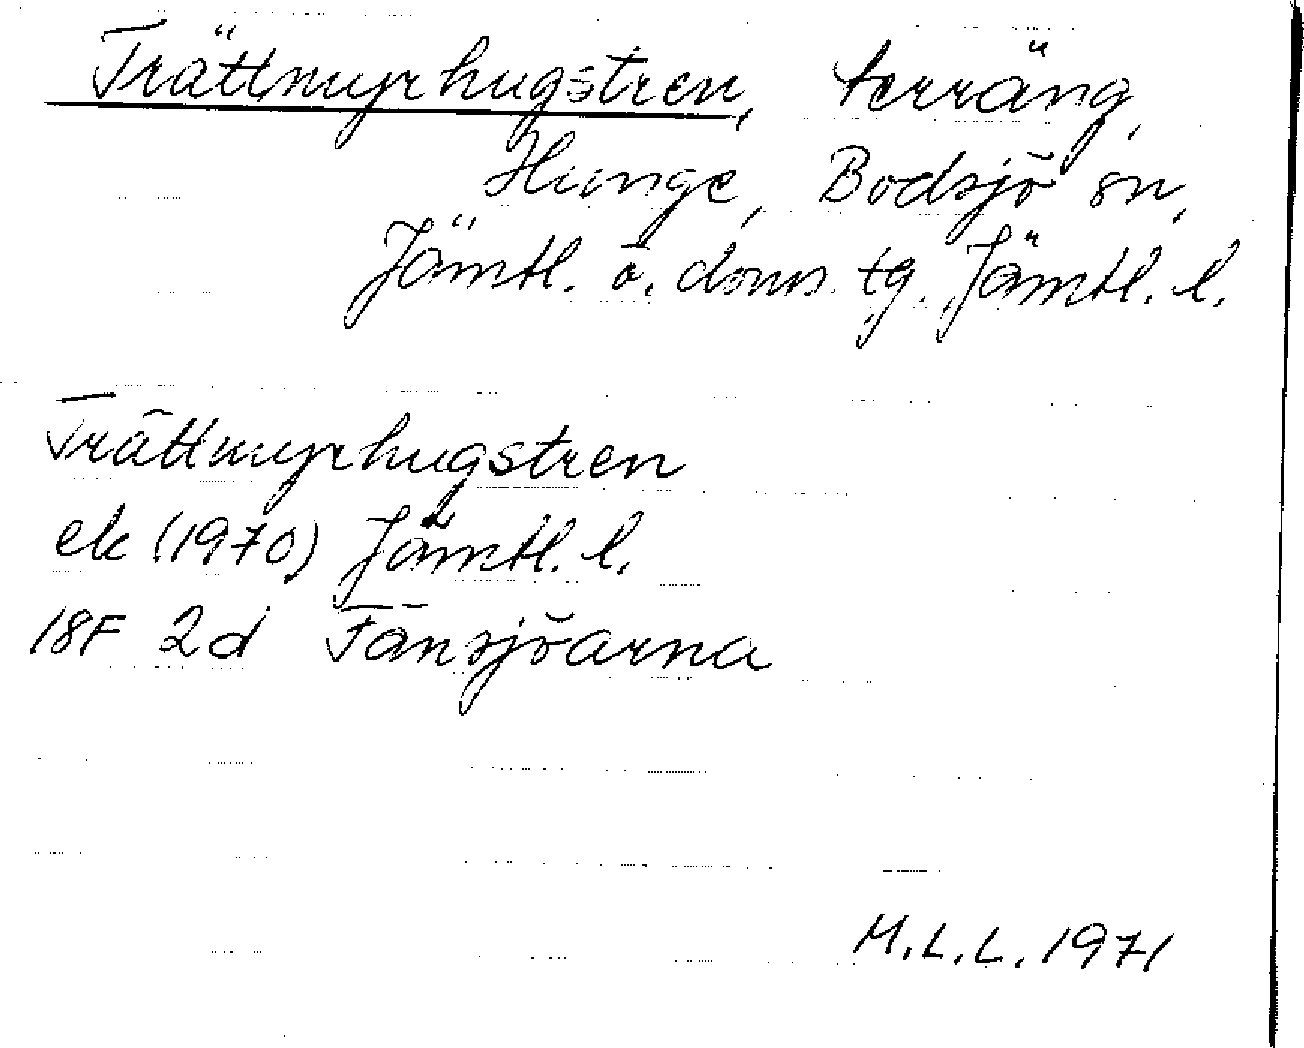 Trättmyrhugstren, terräng,
Hunge, Bodsjö sn,
Jämtl. ö. doms. tg. Jämtl. l.
Trättmyrhugstren
ek (1970) Jämtl. l.
18F 2d Fånsjöarna
M.L.L. 1971